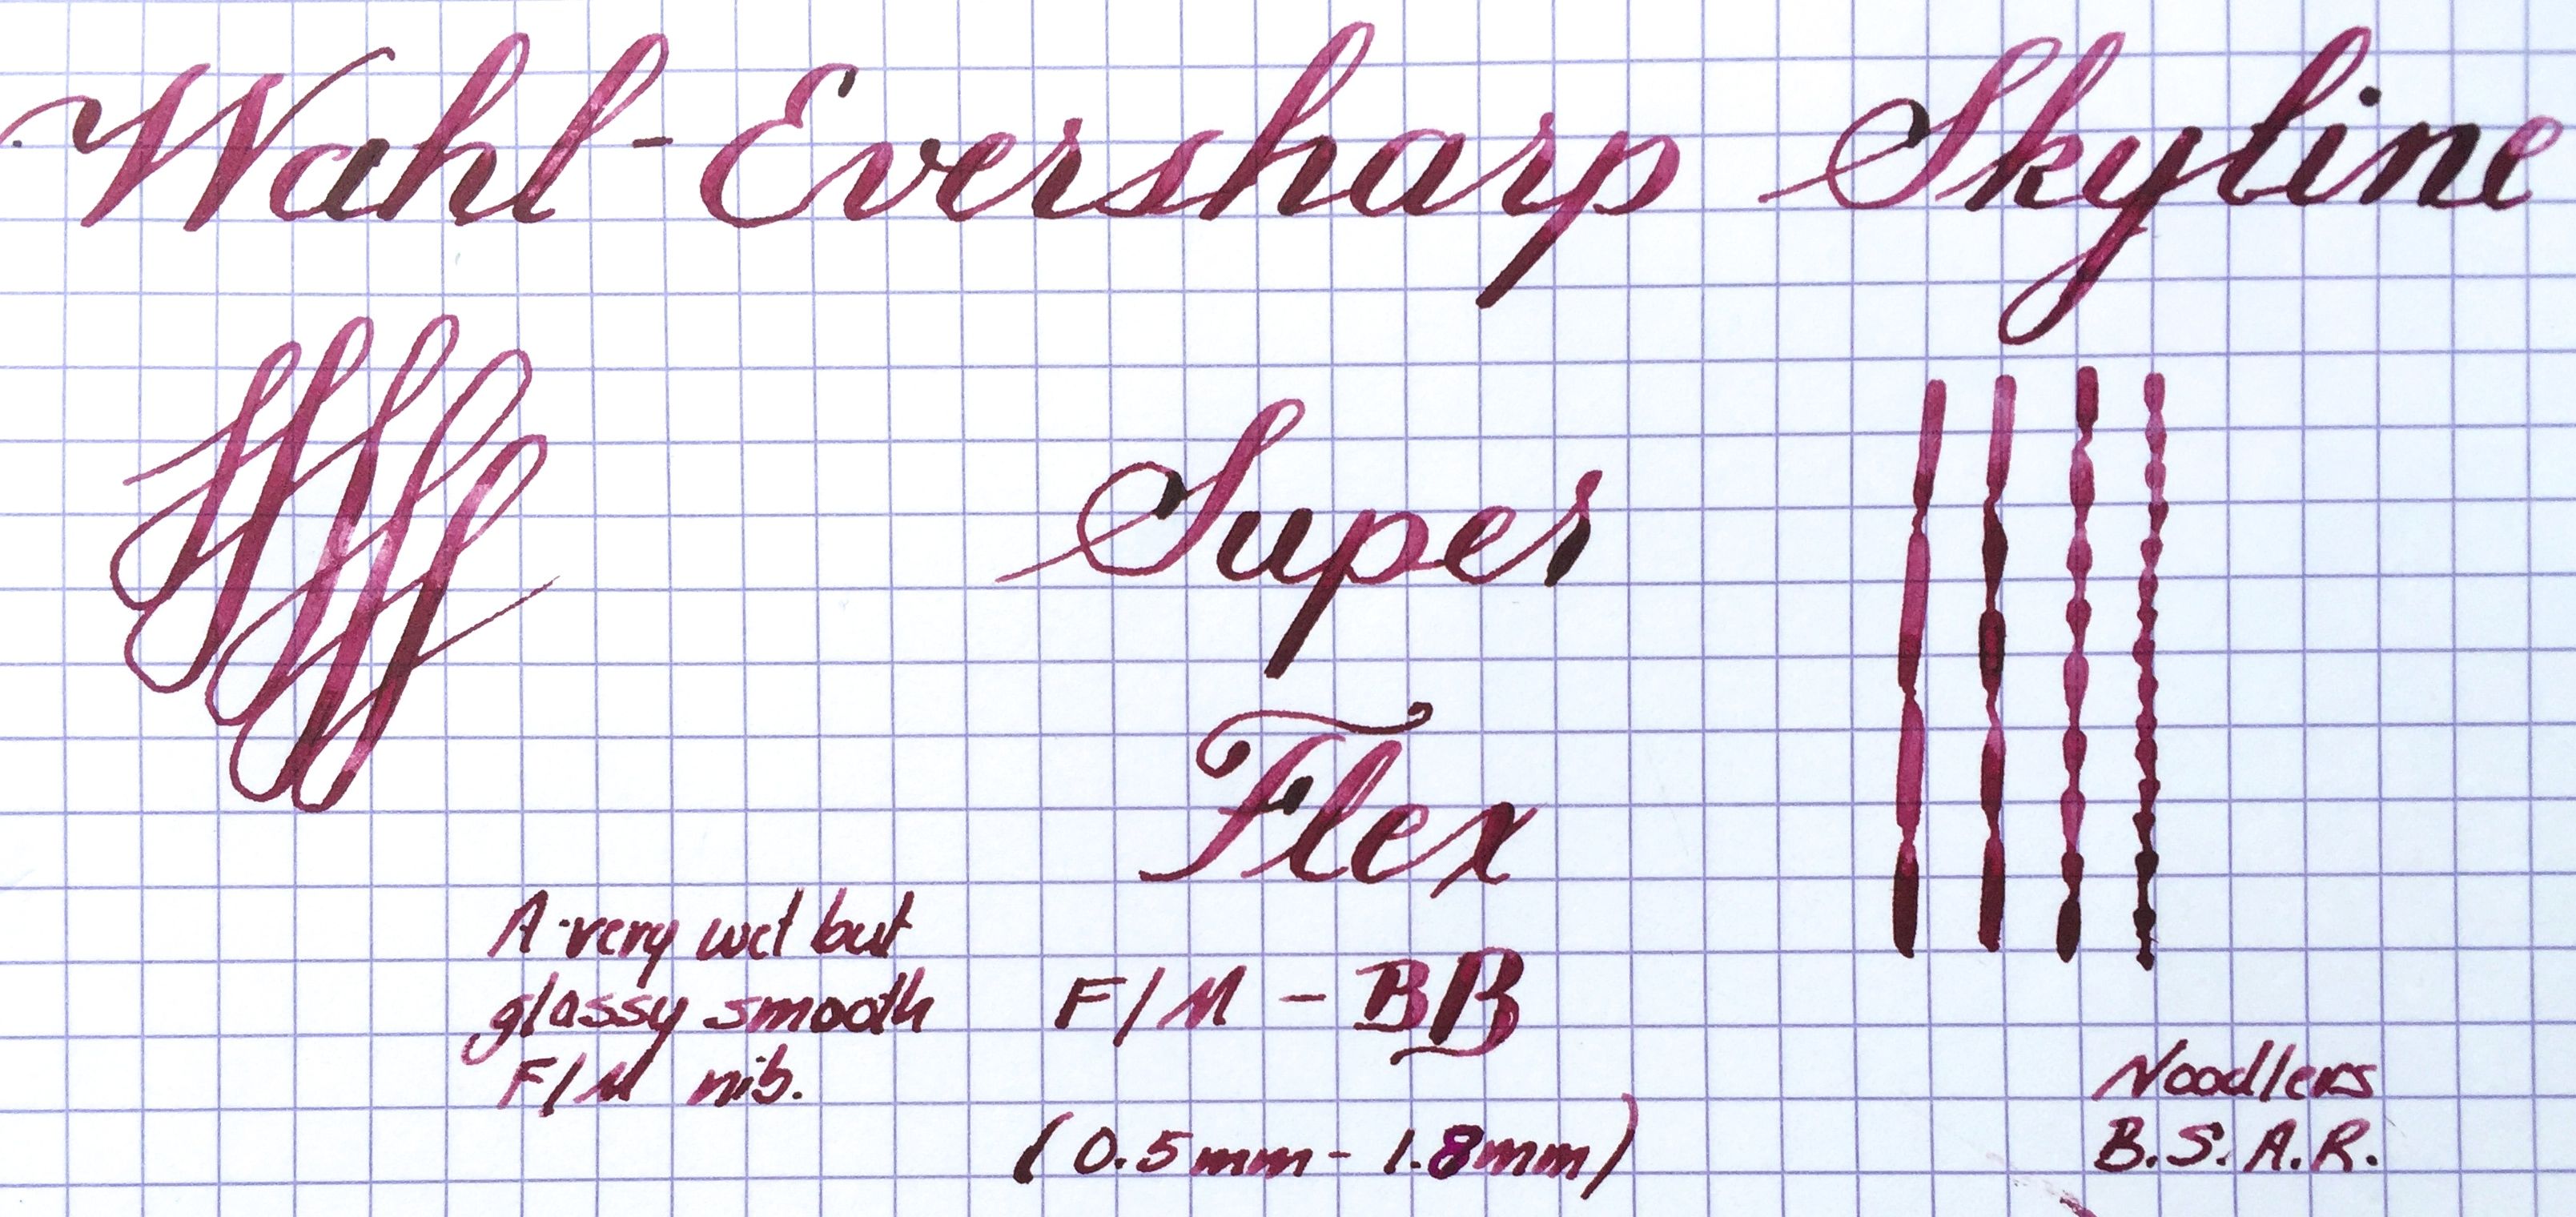 Wahl-Eversharp Skyline
Super
Flex
A very wet but
glassy smooth
F/M nib.
F/M - BB
(0.5mm - 1.8mm)
Noodlers
B.S.A.R.